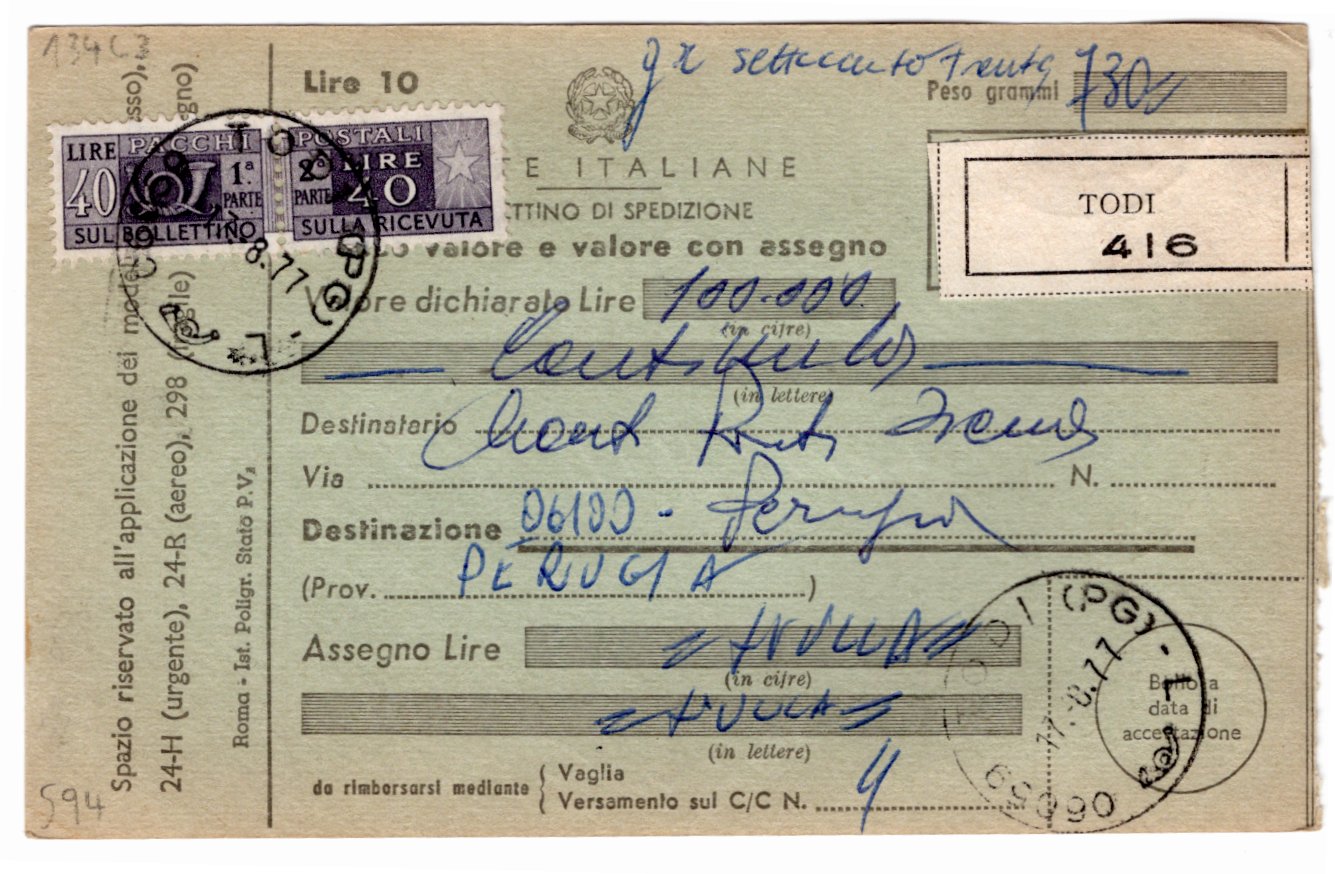 134
Lire 10
gr settecento trenta
Peso grammi 730
LIRE PACCHI POSTALI
40 1ª PARTE 2ª PARTE LIRE 40
SUL BOLLETTINO SULLA RICEVUTA
TE ITALIANE
ETTINO DI SPEDIZIONE
valore e valore con assegno
TODI
416
Valore dichiarato Lire 100.000
(in cifre)
Centomila
(in lettere)
Destinatario
Via N.
Destinazione 06100 - Perugia
(Prov. PERUGIA )
Assegno Lire = NULLA =
(in cifre)
= NULLA =
(in lettere)
da rimborsarsi mediante { Vaglia
Versamento sul C/C N.
Bollo a
data di
accettazione
TODI (PG) - L
8.77
TODI (PG) - L
8.77
06059
Spazio riservato all'applicazione dei
24-H (urgente), 24-R (aereo), 298
Roma - Ist. Poligr. Stato P.V.
594